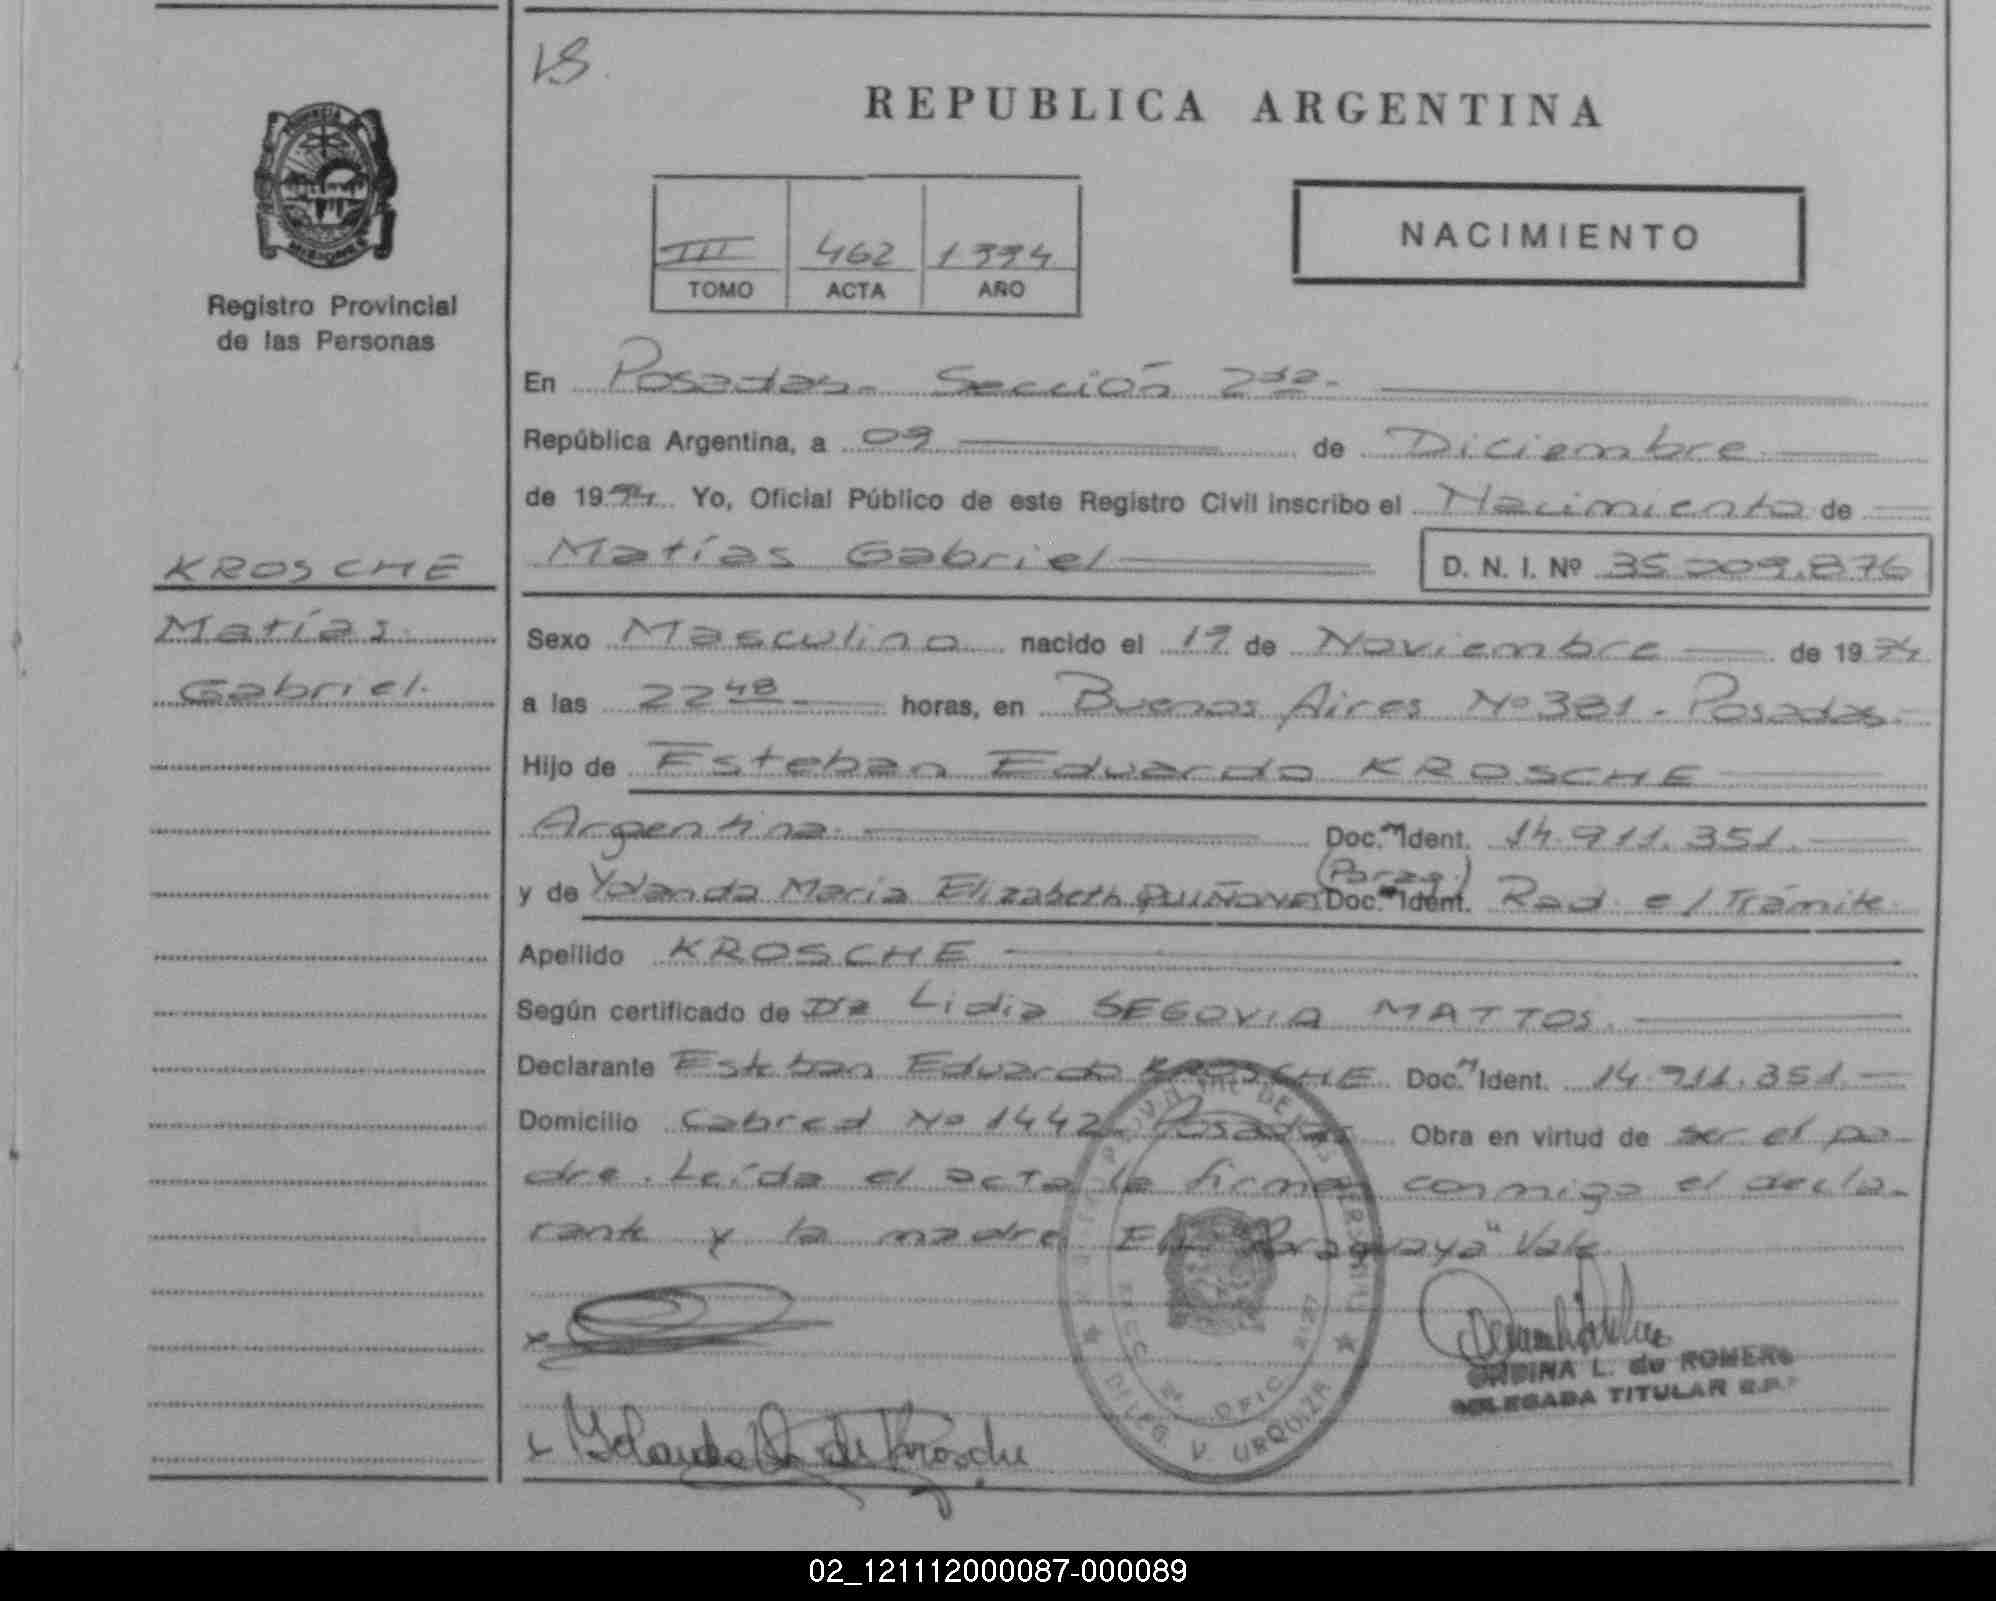 VS.
REPUBLICA ARGENTINA
PROVINCIA DE
MISIONES
Registro Provincial
de las Personas
III 462 1994
TOMO ACTA AÑO
NACIMIENTO
En Posadas - Sección 2da -
República Argentina, a 09 de Diciembre
de 1994 Yo, Oficial Público de este Registro Civil inscribo el Nacimiento de
Matías Gabriel D. N. I. Nº 35.209.876
KROSCHE
Matías
Gabriel.
Sexo Masculino nacido el 19 de Noviembre de 1994
a las 22 48 horas, en Buenos Aires Nº 381 - Posadas
Hijo de Esteban Eduardo KROSCHE
Argentina. Doc. Ident. 14.911.351.
(Parag.)
y de Yolanda María Elizabeth QUIÑONES Doc. Ident. Rad. e/ Trámite
Apellido KROSCHE
Según certificado de Dra Lidia SEGOVIA MATTOS.
Declarante Esteban Eduardo KROSCHE Doc. Ident. 14.911.351.
Domicilio Cabred Nº 1442 Posadas Obra en virtud de ser el pa-
dre. Leída el acta la firman conmigo el decla-
rante y la madre E/L "Paraguaya" Vale
ONDINA L. de ROMERO
DELEGADA TITULAR R.P.P.
Yolanda Q. de Krosche
DELEG. V. URQUIZA
OFIC.
02_121112000087-000089